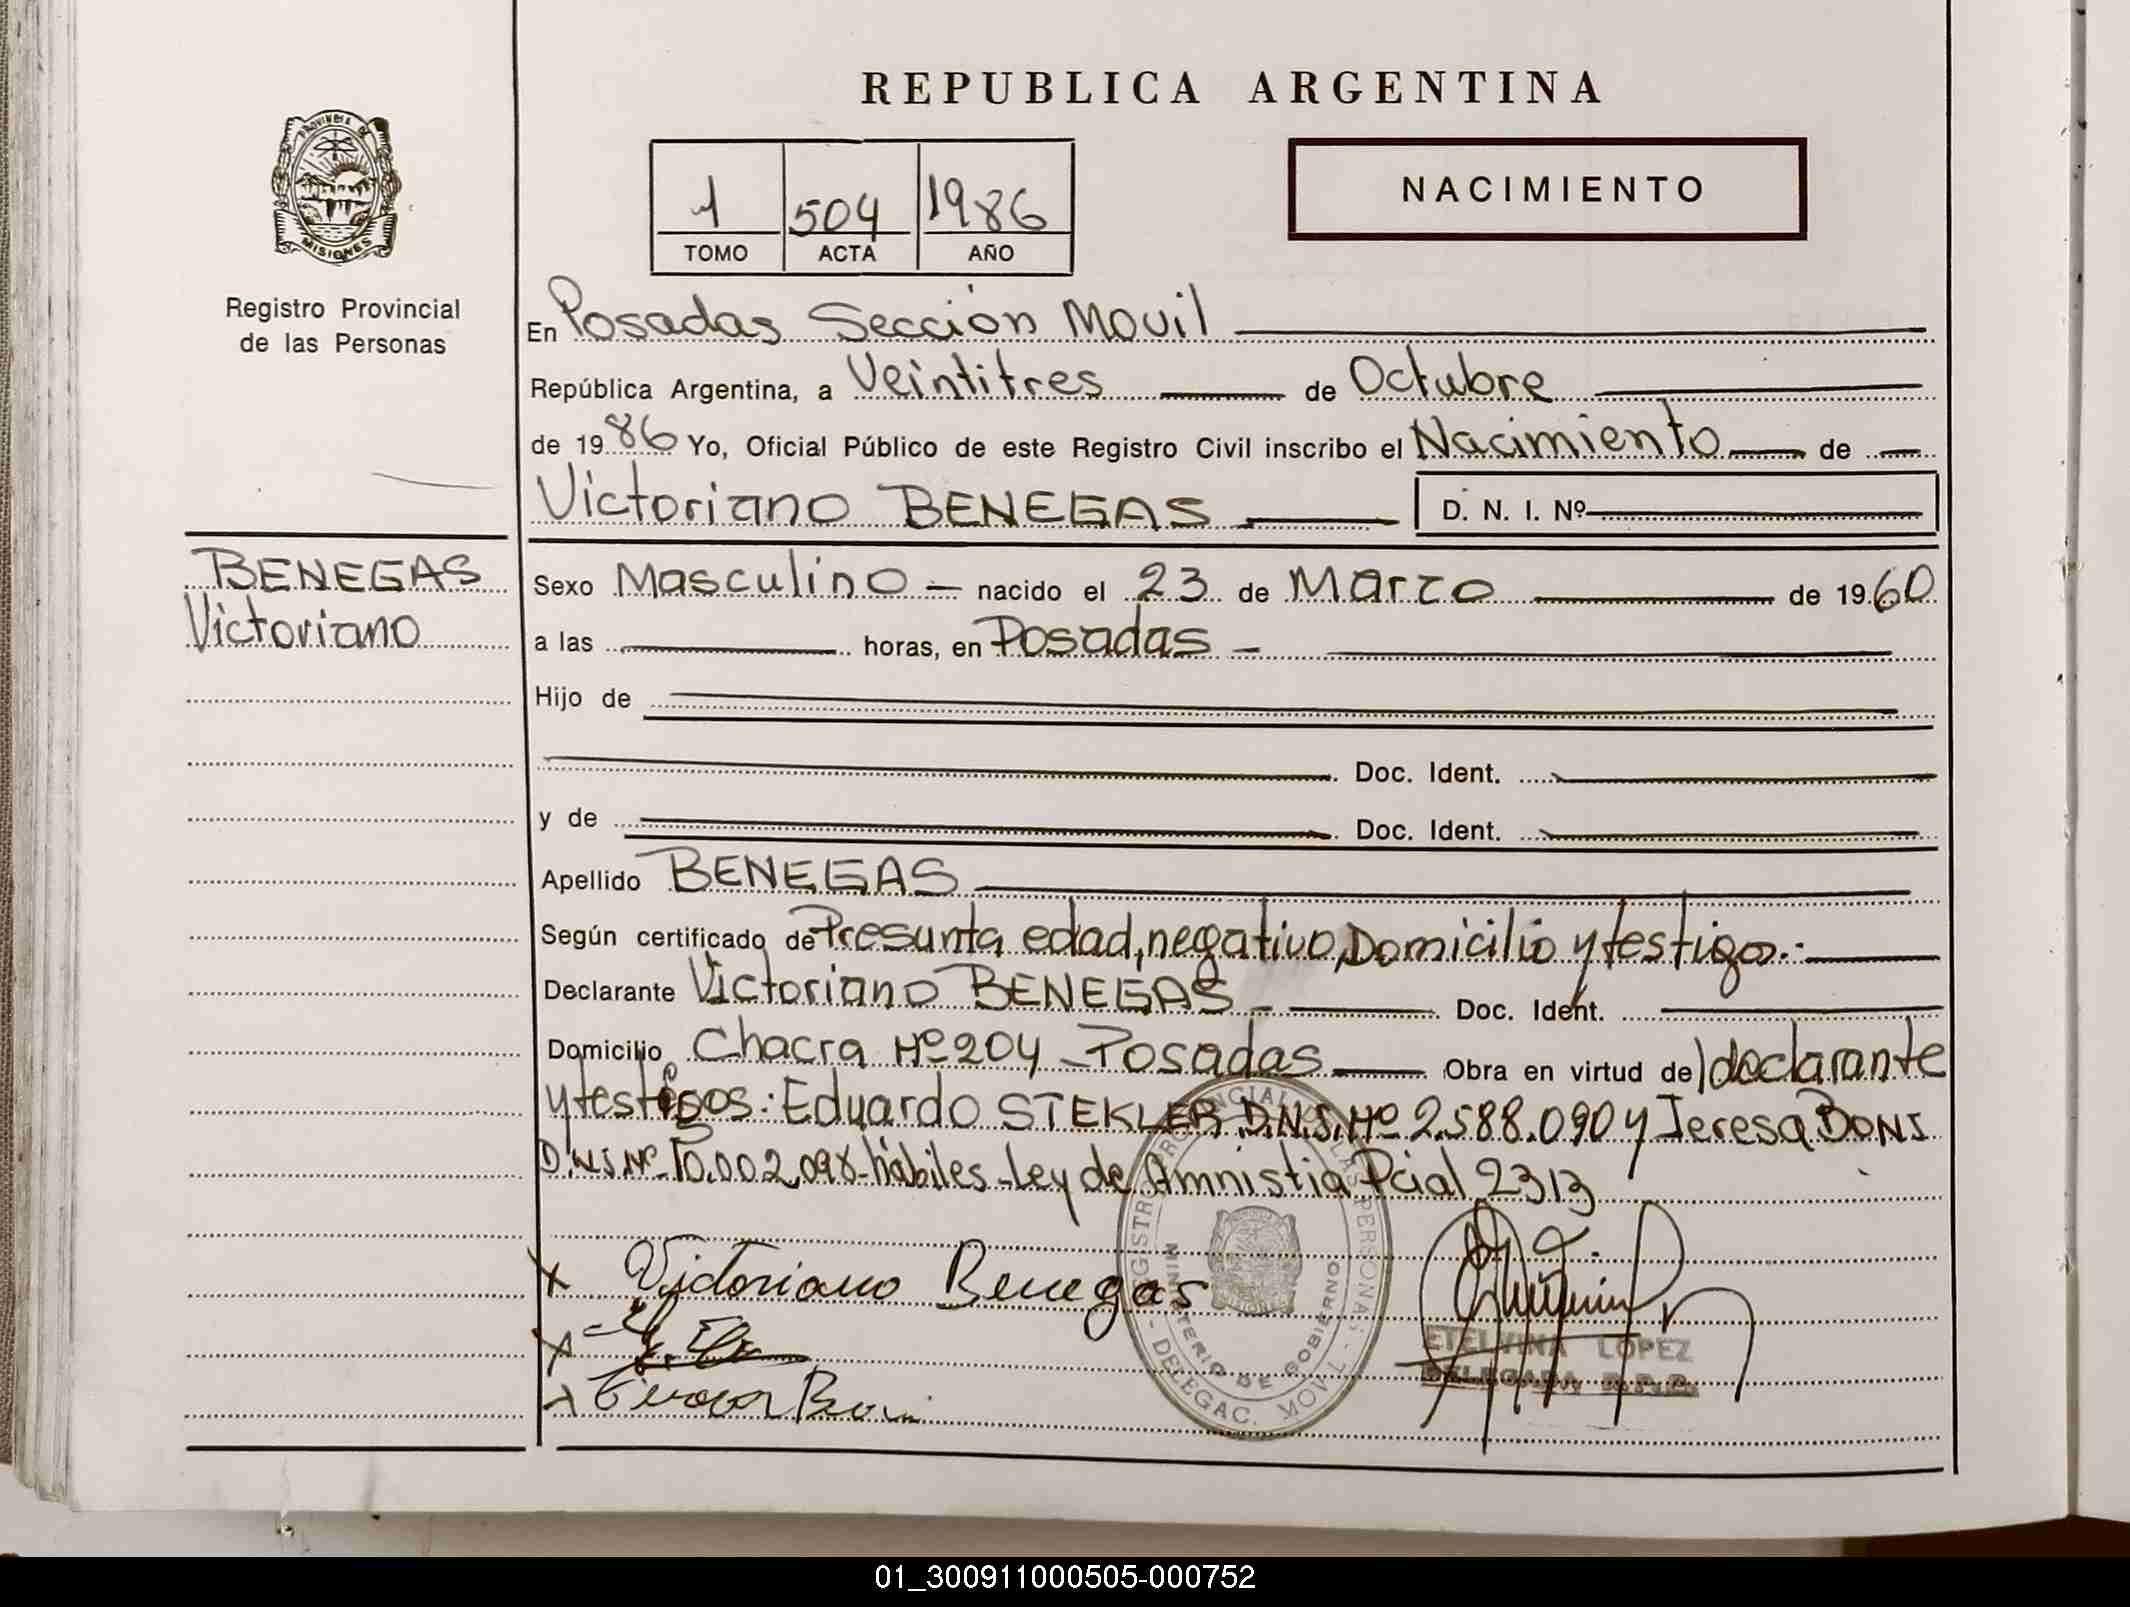 REPUBLICA ARGENTINA
PROVINCIA DE
MISIONES
Registro Provincial
de las Personas
1 504 1986
TOMO ACTA AÑO
NACIMIENTO
En Posadas Sección Movil
República Argentina, a Veintitres de Octubre
de 1986 Yo, Oficial Público de este Registro Civil inscribo el Nacimiento de
Victoriano BENEGAS D. N. I. Nº
BENEGAS
Victoriano
Sexo Masculino nacido el 23 de Marzo de 1960
a las horas, en Posadas
Hijo de
Doc. Ident.
y de Doc. Ident.
Apellido BENEGAS
Según certificado de Presunta edad, negativo, Domicilio y testigos.-
Declarante Victoriano BENEGAS Doc. Ident.
Domicilio Chacra Nº 204 - Posadas Obra en virtud de declarante
y testigos: Eduardo STEKLER D.N.I. Nº 2.588.090 y Teresa BONI
D.N.I. Nº 10.002.098 - hábiles - Ley de Amnistia Pcial 2313
Victoriano Benegas
REGISTRO PROVINCIAL DE LAS PERSONAS - DELEGAC. MOVIL -
MINISTERIO DE GOBIERNO
ETELVINA LOPEZ
DELEGADA R.P.P.
01_300911000505-000752